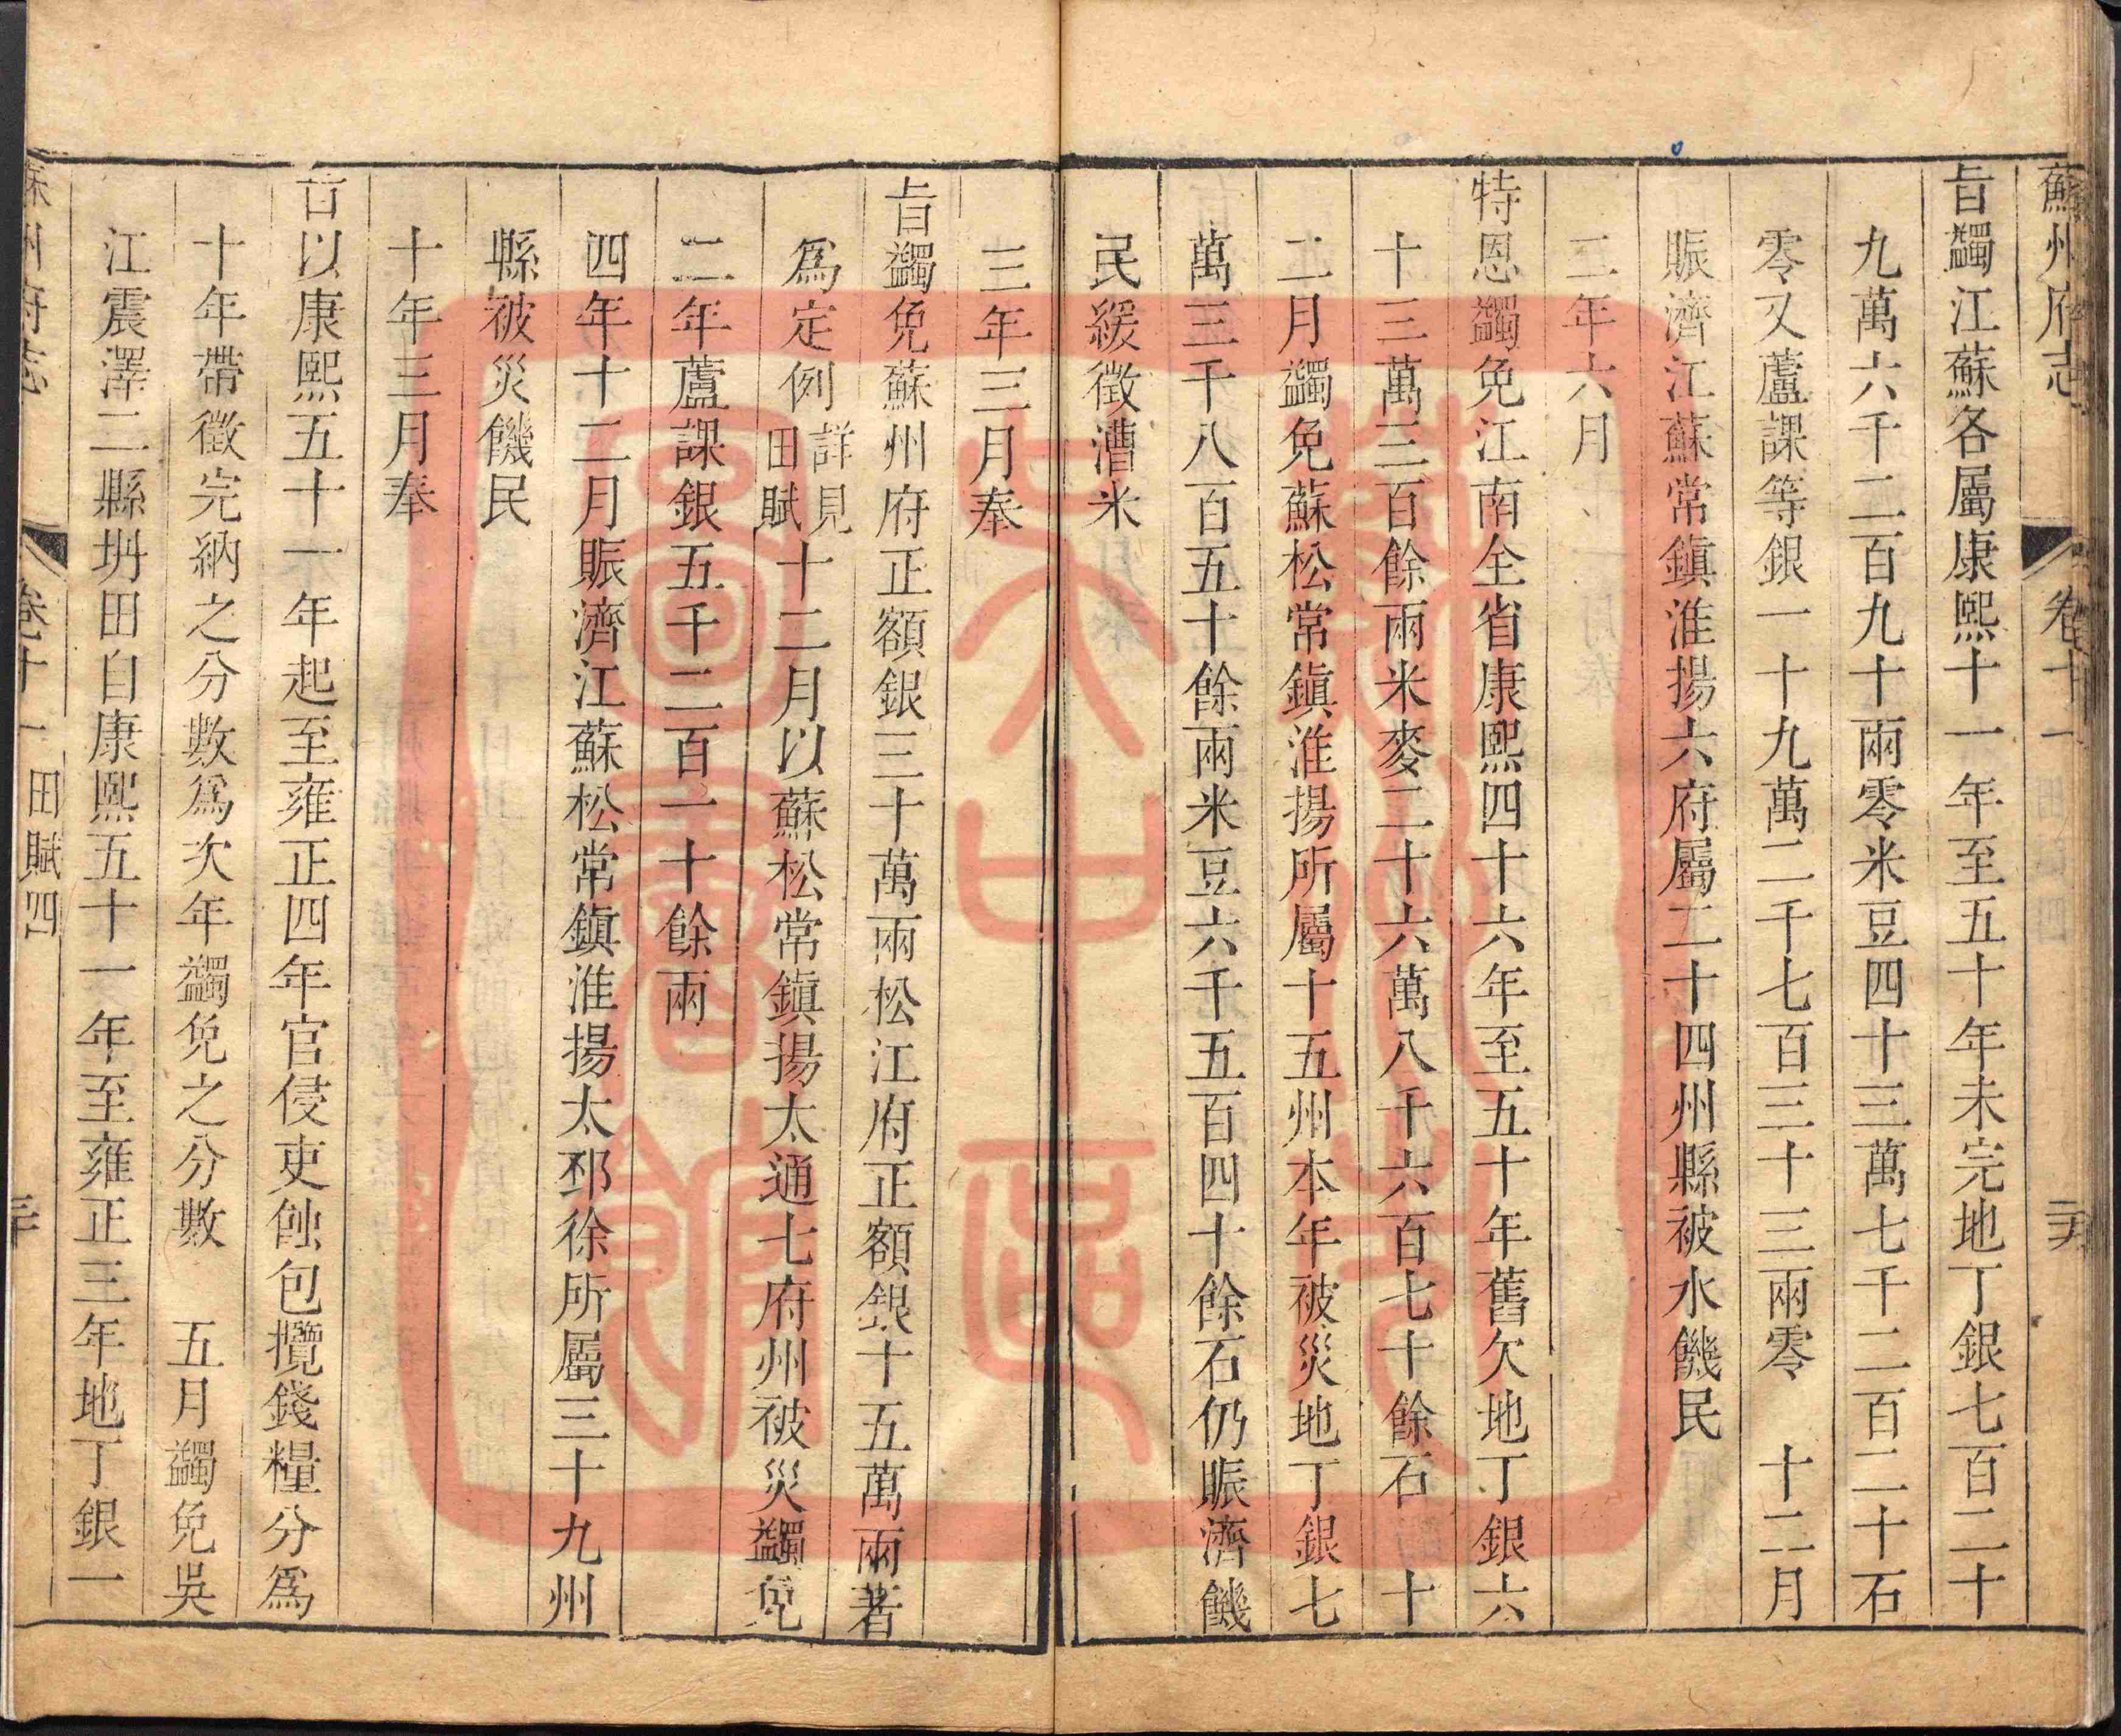 蘇州府志 卷十一
旨蠲江蘇各屬康熙十一年至五十年未完地丁銀七百二十
九萬六千二百九十兩零米豆四十三萬七千二百二十石
零又蘆課等銀一十九萬二千七百三十三兩零 十二月
賑濟江蘇常鎮淮揚六府屬二十四州縣被水饑民
二年六月
特恩蠲免江南全省康熙四十六年至五十年舊欠地丁銀六
十三萬三百餘兩米麥二十六萬八千六百七十餘石 十
二月蠲免蘇松常鎮淮揚所屬十五州本年被災地丁銀七
萬三千八百五十餘兩米豆六千五百四十餘石仍賑濟饑
民緩徵漕米
三年三月奉
旨蠲免蘇州府正額銀三十萬兩松江府正額銀十五萬兩著
爲定例詳見田賦十二月以蘇松常鎮揚太通七府州被災蠲免
二年蘆課銀五千二百一十餘兩
四年十二月賑濟江蘇松常鎮淮揚太邳徐所屬三十九州
縣被災饑民
十年三月奉
旨以康熙五十一年起至雍正四年官侵吏蝕包攬錢糧分爲
十年帶徵完納之分數爲次年蠲免之分數 五月蠲免吳
江震澤二縣坍田自康熙五十一年至雍正三年地丁銀一
蘇州府志 卷十一 田賦四 三十